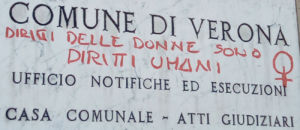 COMUNE DI VERONA
DIRITTI DELLE DONNE SONO
DIRITTI UMANI
UFFICIO NOTIFICHE ED ESECUZIONI
CASA COMUNALE - ATTI GIUDIZIARI